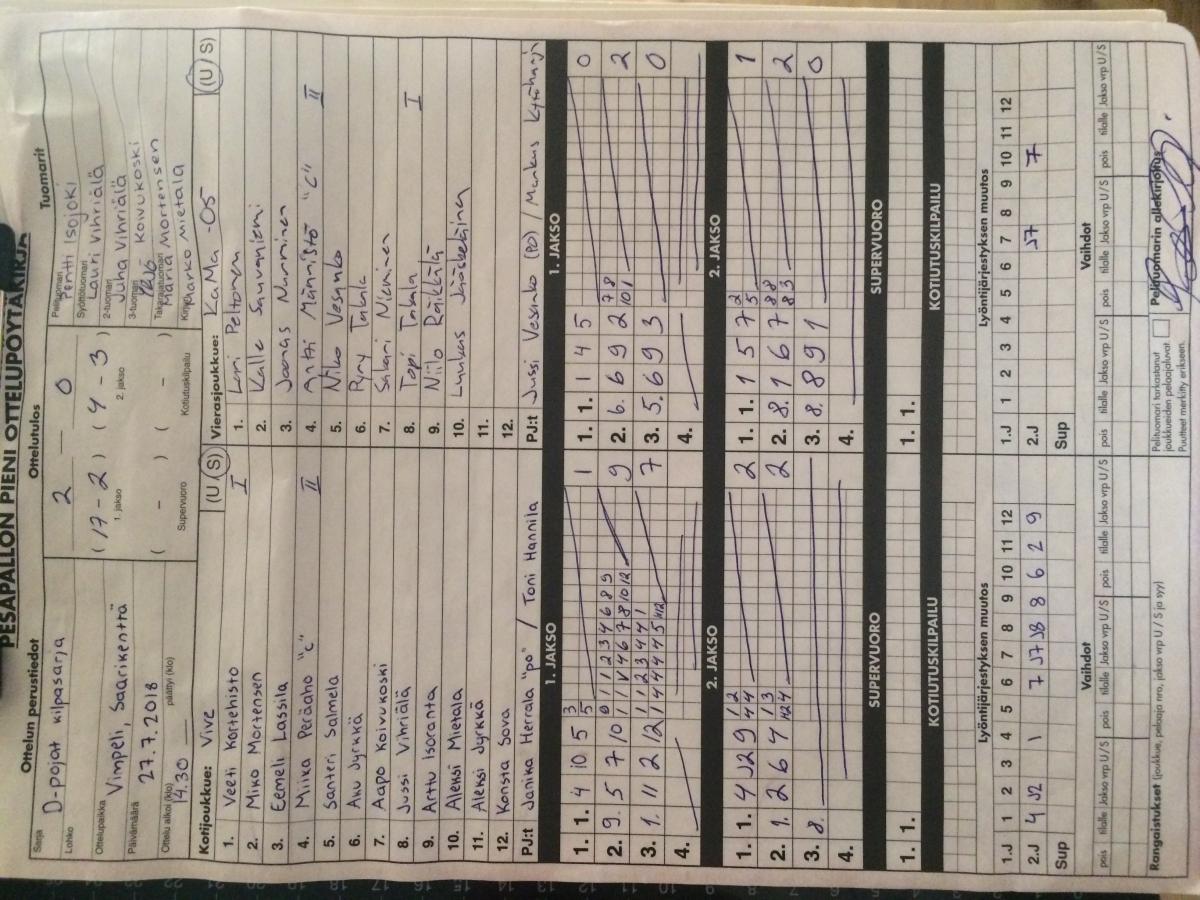 PESÄPALLON PIENI OTTELUPÖYTÄKIRJA
Ottelun perustiedot
Sarja D-pojat kilpasarja
Lohko
Ottelupaikka Vimpeli, Saarikenttä
Päivämäärä 27.7.2018
Ottelu alkoi (klo) 14.30 päättyi (klo)
Ottelutulos
2 — 0
(17 - 2) (4 - 3)
1. jakso 2. jakso
( - ) ( - )
Supervuoro Kotiutuskilpailu
Tuomarit
Pelituomari Pentti Isojoki
Syöttötuomari Lauri Vihriälä
2-tuomari Juha Vihriälä
3-tuomari Koivukoski
Takarajatuomari Maria Mortensen
Kirjuri Marko Mietala
Kotijoukkue: Vive (U/S)
1. Veeti Kortehisto I
2. Miko Mortensen
3. Eemeli Lassila
4. Miika Peräaho "c" II
5. Santeri Salmela
6. Anu Jyrkkä
7. Aapo Koivukoski
8. Jussi Vihriälä
9. Arttu Isoranta
10. Aleksi Mietala
11. Aleksi Jyrkkä
12. Konsta Sova
PJ:t Janika Herrala "po" / Toni Hannila
Vierasjoukkue: KaMa -05 (U/S)
1. Lari Peltonen
2. Kalle Saunaniemi
3. Joonas Nurminen
4. Antti Männistö "c" II
5. Niko Vesanko
6. Pyry Takala
7. Sakari Nieminen
8. Topi Takala I
9. Niilo Räikkälä
10. Luukas Jääskeläinen
11.
12.
PJ:t Jussi Vesanko (PO) / Markus
1. JAKSO
1. 1. 4 10 5 3 5 1
2. 9. 5 7 10 9
3. 1. 11 2 12 7
4.
2. JAKSO
1. 1. 4 J2 9 2
2. 1. 2 6 4 2
3. 8.
4.
SUPERVUORO
1. 1.
KOTIUTUSKILPAILU
1. JAKSO
1. 1. 1 4 5 0
2. 6. 6 9 2 7 8 10 1 2
3. 5. 6 9 3 0
4.
2. JAKSO
1. 1. 1 5 7 2 5 1
2. 8. 1 6 7 8 8 8 3 2
3. 8. 8 9 1 0
4.
SUPERVUORO
1. 1.
KOTIUTUSKILPAILU
Lyöntijärjestyksen muutos
1.J 1 2 3 4 5 6 7 8 9 10 11 12
2.J 4 J2 1 7 J7 J8 8 6 2 9
Sup
Lyöntijärjestyksen muutos
1.J 1 2 3 4 5 6 7 8 9 10 11 12
2.J J7 7
Sup
Vaihdot
pois tilalle Jakso vrp U/S pois tilalle Jakso vrp U/S pois tilalle Jakso vrp U/S
Vaihdot
pois tilalle Jakso vrp U/S pois tilalle Jakso vrp U/S pois tilalle Jakso vrp U/S
Rangaistukset (joukkue, pelaaja nro, jakso vrp U / S ja syy)
Pelituomari tarkastanut
joukkueiden pelaajaluvat.
Puutteet merkitty erikseen.
Pelituomarin allekirjoitus